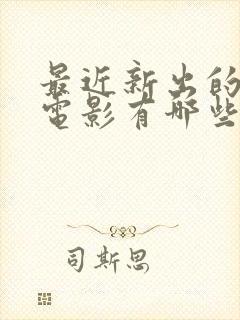 最近新出的
電影有哪些
司斯思